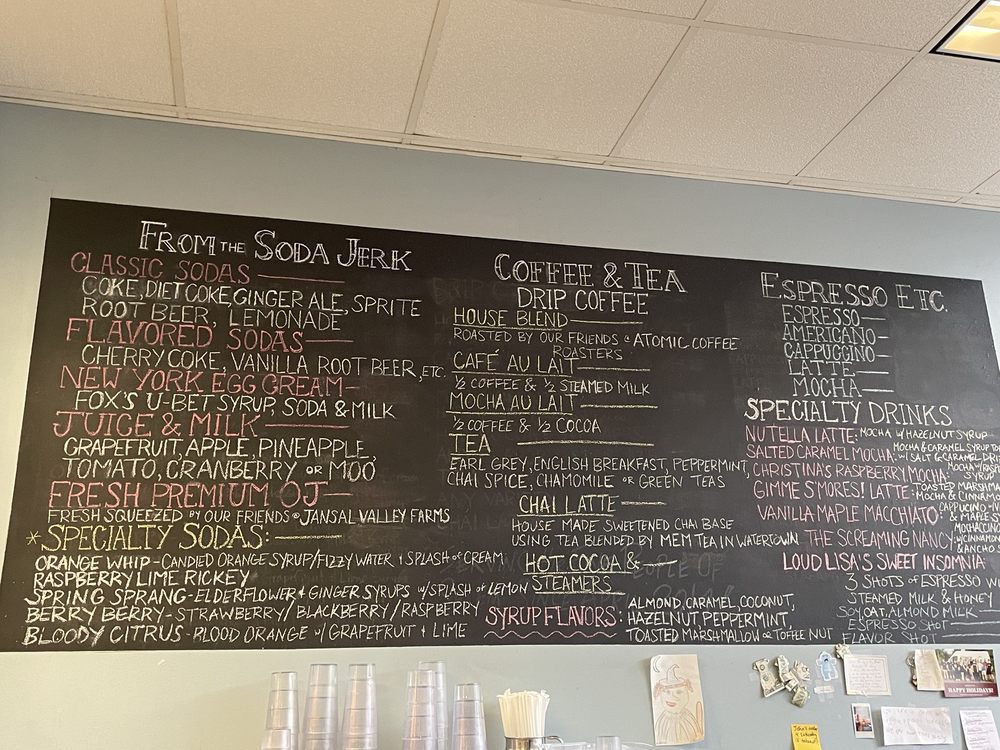 FROM THE SODA JERK
CLASSIC SODAS
COKE, DIET COKE, GINGER ALE, SPRITE
ROOT BEER, LEMONADE
FLAVORED SODAS
CHERRY COKE, VANILLA ROOT BEER, ETC.
NEW YORK EGG CREAM
FOX'S U-BET SYRUP, SODA & MILK
JUICE & MILK
GRAPEFRUIT, APPLE, PINEAPPLE,
TOMATO, CRANBERRY OR MOO
FRESH PREMIUM OJ
FRESH SQUEEZED BY OUR FRIENDS @ JANSAL VALLEY FARMS
* SPECIALTY SODAS:
ORANGE WHIP - CANDIED ORANGE SYRUP/FIZZY WATER & SPLASH OF CREAM
RASPBERRY LIME RICKEY
SPRING SPRANG - ELDERFLOWER & GINGER SYRUPS W/SPLASH OF LEMON
BERRY BERRY - STRAWBERRY/BLACKBERRY/RASPBERRY
BLOODY CITRUS - BLOOD ORANGE W/ GRAPEFRUIT & LIME
COFFEE & TEA
DRIP COFFEE
HOUSE BLEND
ROASTED BY OUR FRIENDS @ ATOMIC COFFEE
ROASTERS
CAFÉ AU LAIT
½ COFFEE & ½ STEAMED MILK
MOCHA AU LAIT
½ COFFEE & ½ COCOA
TEA
EARL GREY, ENGLISH BREAKFAST, PEPPERMINT,
CHAI SPICE, CHAMOMILE OR GREEN TEAS
CHAI LATTE
HOUSE MADE SWEETENED CHAI BASE
USING TEA BLENDED BY MEM TEA IN WATERTOWN
HOT COCOA &
STEAMERS
SYRUP FLAVORS:
ALMOND, CARAMEL, COCONUT,
HAZELNUT PEPPERMINT,
TOASTED MARSHMALLOW OR TOFFEE NUT
ESPRESSO ETC.
ESPRESSO
AMERICANO
CAPPUCCINO
LATTE
MOCHA
SPECIALTY DRINKS
NUTELLA LATTE: MOCHA W/HAZELNUT SYRUP
SALTED CARAMEL MOCHA: MOCHA & CARAMEL SYRUP
W/SALT & CARAMEL
CHRISTINA'S RASPBERRY MOCHA: MOCHA
SYRUP
GIMME S'MORES! LATTE: TOASTED
MOCHA &
VANILLA MAPLE MACCHIATO:
THE SCREAMING NANCY:
LOUD LISA'S SWEET INSOMNIA
3 SHOTS OF ESPRESSO
STEAMED MILK & HONEY
SOY, OAT, ALMOND MILK
ESPRESSO SHOT
FLAVOR SHOT
HAPPY HOLIDAYS!